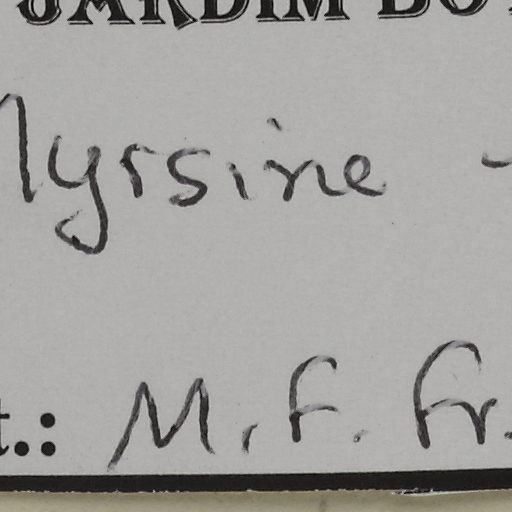 JARDIM BO
Myrsine -
t.: M. F. Fr.